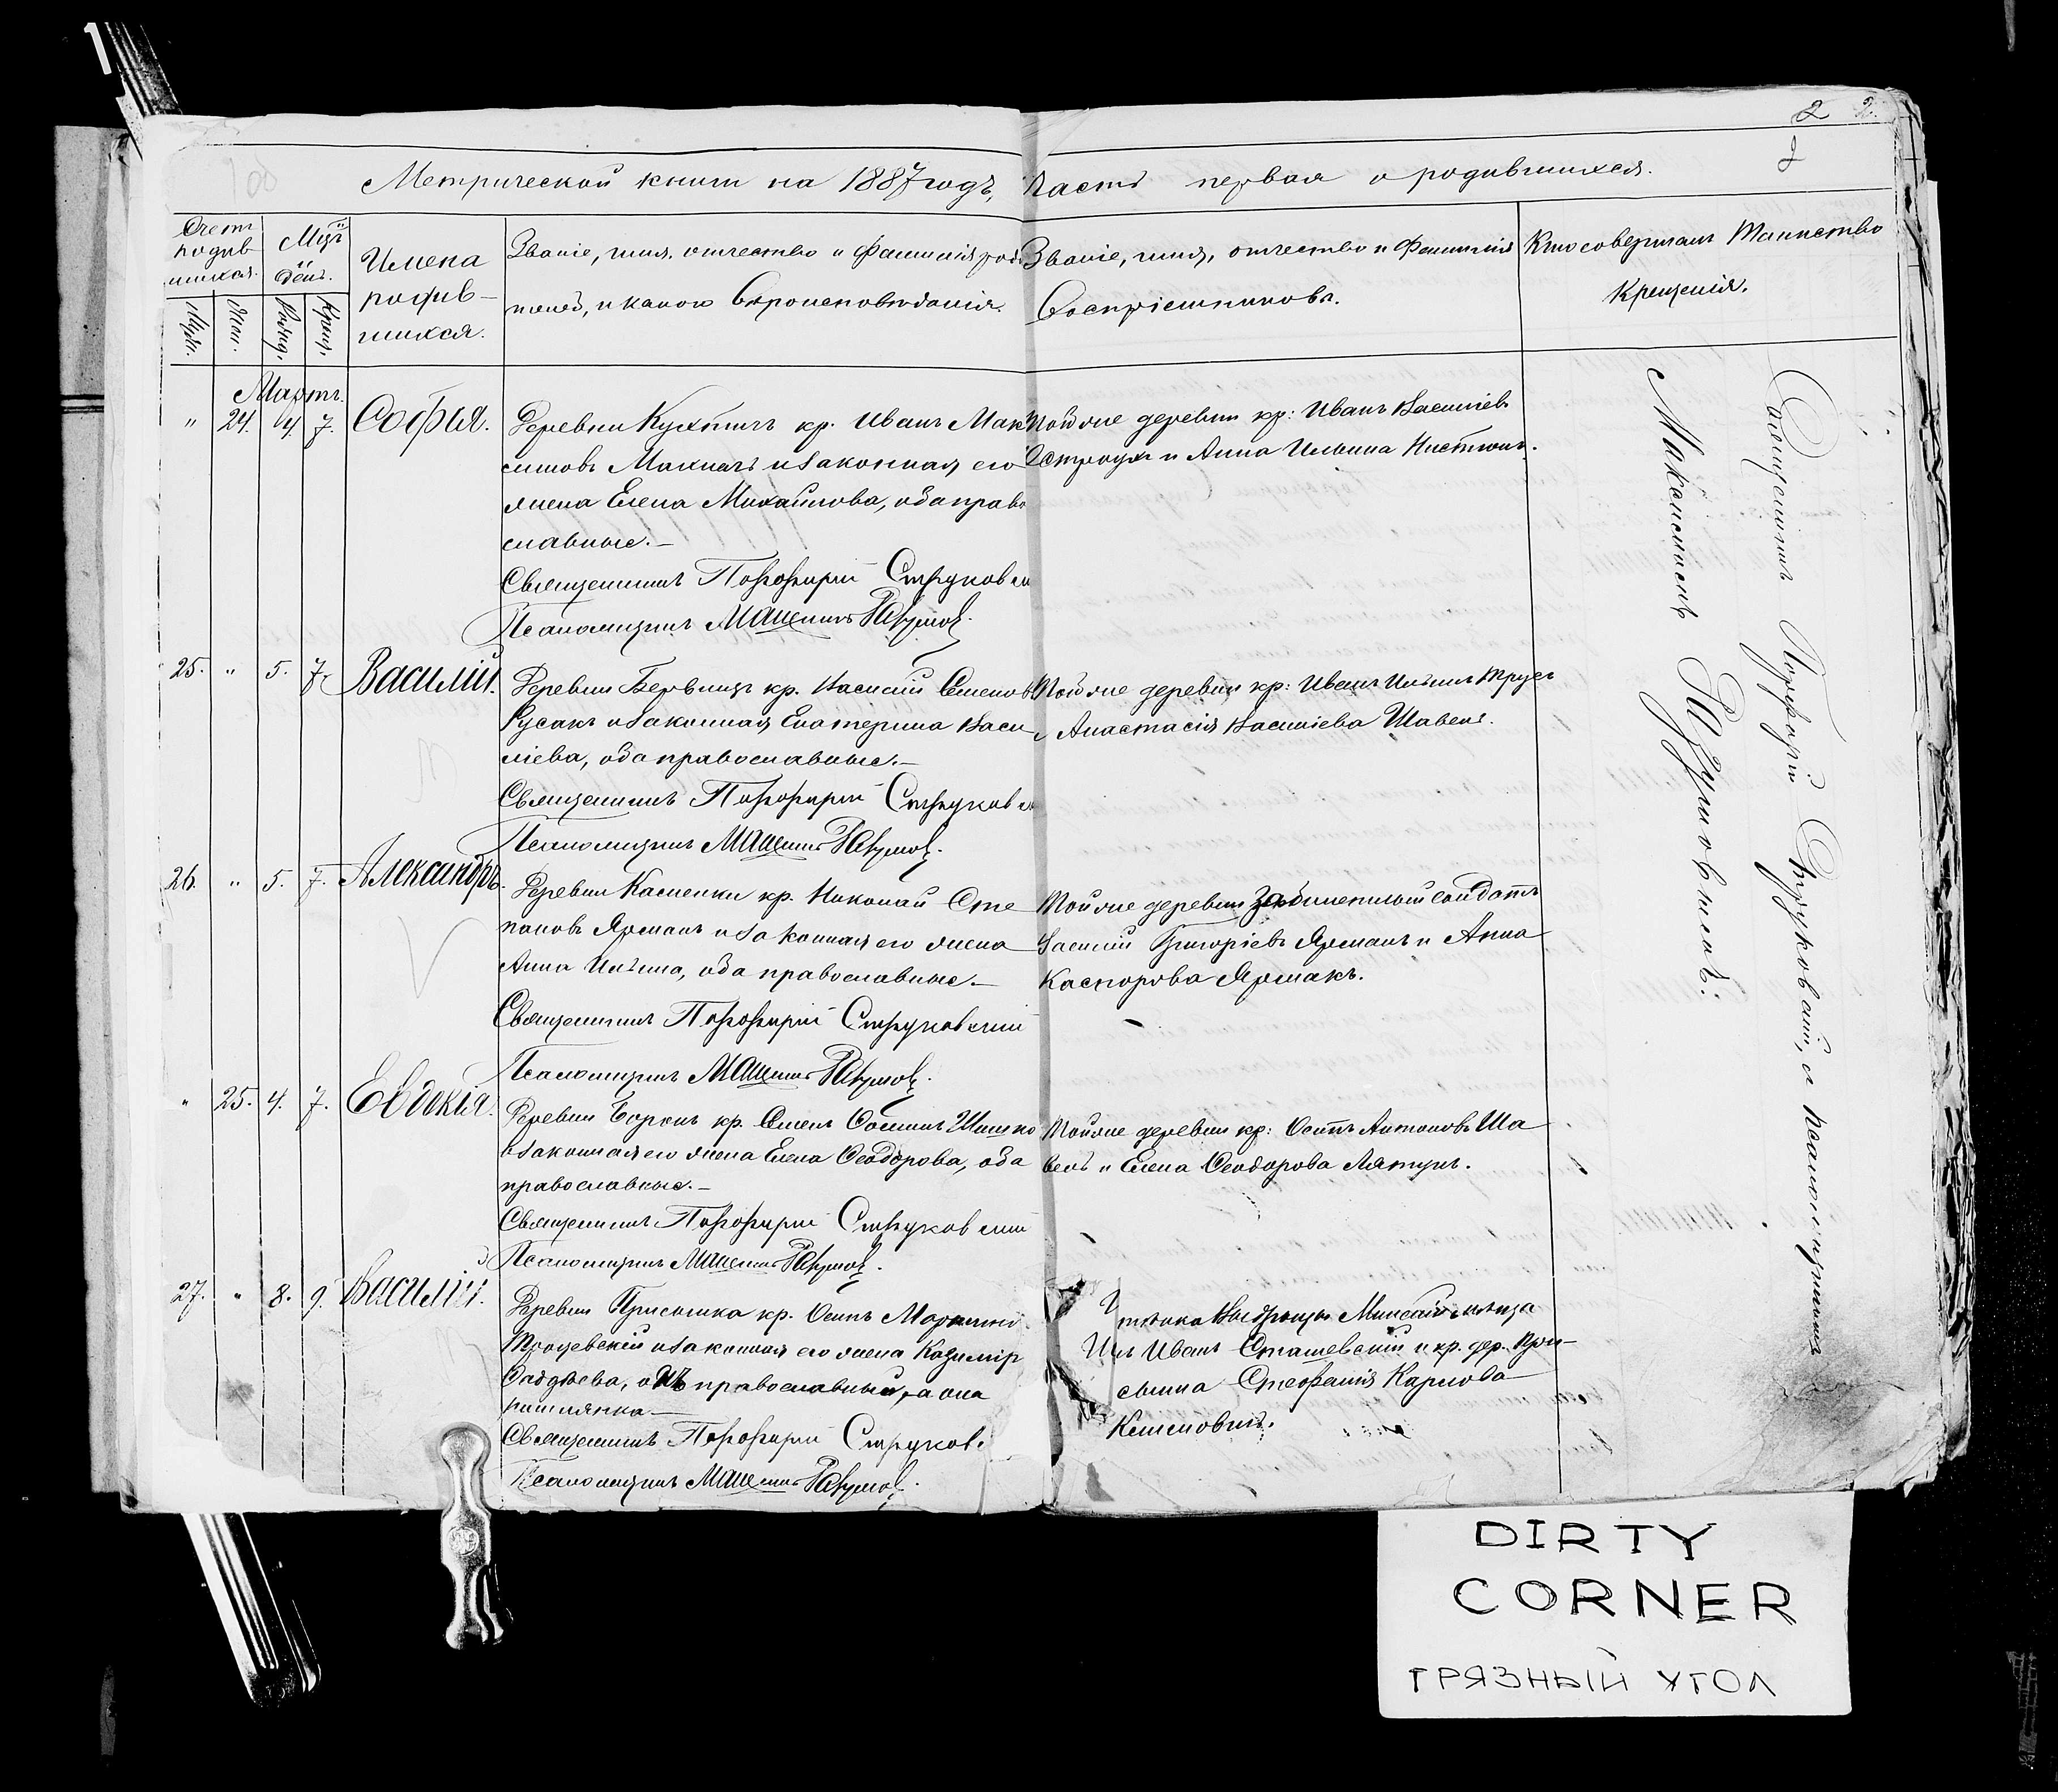 2 2.
2
100
Метрической книги на 1887 годъ, часть первая о родившихся.
Счетъ родив-шихся.
Мцъ и день.
Имена родив-шихся.
Званіе, имя, отчество и фамилія роди-
телей, и какого вѣроисповѣданія.
Званіе, имя, отчество и фамилія
Воспріемниковъ.
Кто совершалъ Таинство
Крещенія.
Муж. Жен. Рожд. Крещ.
Мартъ.
" 24. 4. 7. Софія.
Деревни Кухтичъ кр. Иванъ Мак
симовъ и законная его
жена Елена Михайлова, оба право
славные.—
Священникъ Порфирій Струковскі
Псаломщикъ Максим Разумов
Той же деревни кр: Иванъ Васильевъ
и Анна Ильина
25. " 5. 7. Василій.
Деревни кр. Василій Семеновъ
Русакъ и законная Екатерина Васи
ліева, оба православные.—
Священникъ Порфирій Струковск
Псаломщикъ Максим Разумов
Той же деревни кр: Иванъ Ильинъ Трусъ
и Анастасія Василіева Шавель.
26. " 5. 7. Александръ.
Деревни Каменки кр. Николай Сте
пановъ Ярмакъ и законная его жена
Анна Ильина, оба православные.—
Священникъ Порфирій Струковскій
Псаломщикъ Максим Разумов
Той же деревни солдатъ
Василій Григорьевъ Ярмакъ и Анна
Каспорова Ярмакъ.
" 25. 4. 7. Евдокія.
Деревни кр. Семенъ Шишко
и законная его жена Елена Ѳеодорова, оба
православные.—
Священникъ Порфирій Струковскій
Псаломщикъ Максим Разумов
Той же деревни кр: Осипъ Антоновъ Ша
вель и Елена Ѳеодорова
27. " 8. 9. Василій.
Деревни Присынка кр. Осипъ
и законная его жена Казимір
Ѳаддѣева, онъ православный, а она
римлянка—
Священникъ Порфирій Струков
Псаломщикъ Максим Разумов
Иванъ Сташевскій и кр. дер. При-
сынка Стефанія Карлова
Священникъ Порфирій Струковскій, и псаломщикъ
Максимъ Разумовичъ.
DIRTY
CORNER
ГРЯЗНЫЙ УГОЛ